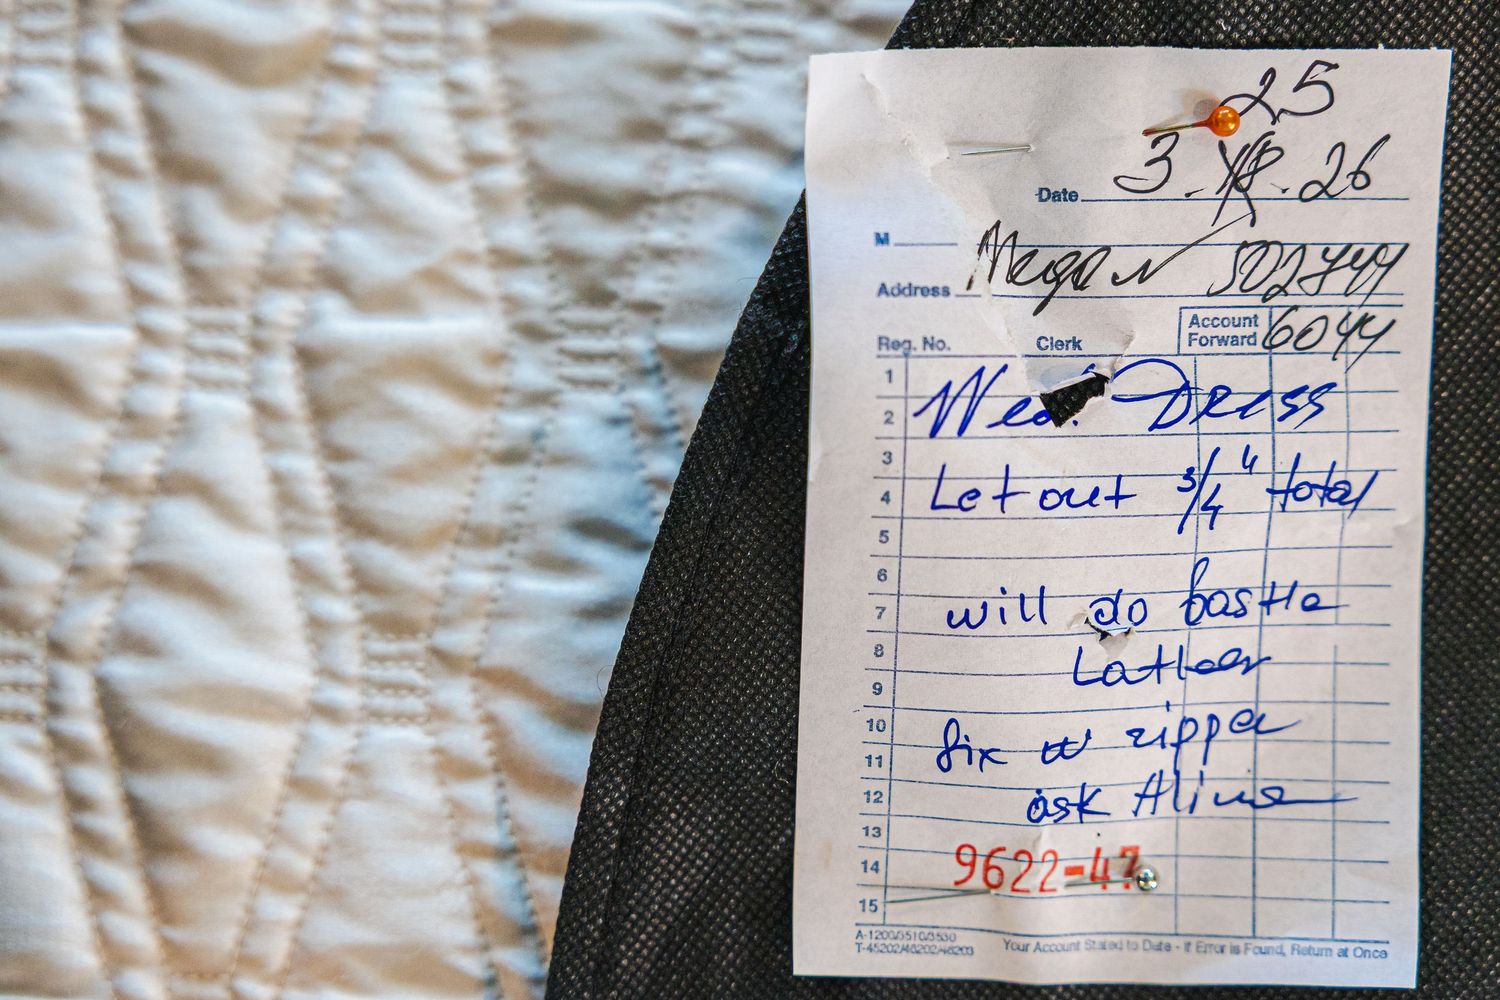 25
Date 3. . 26
M
Megan 502 744
Address
6044
Reg. No. Clerk Account Forward
1
2 Wed. Dress
3
4 Let out 3/4" total
5
6
7 will do bastle
8
9 Latter
10
11 fix w zipper
12 ask Aline
13
14 9622-47
15
A-1200/3510/3530
T-45202/46202/48203
Your Account Stated to Date - If Error is Found, Return at Once